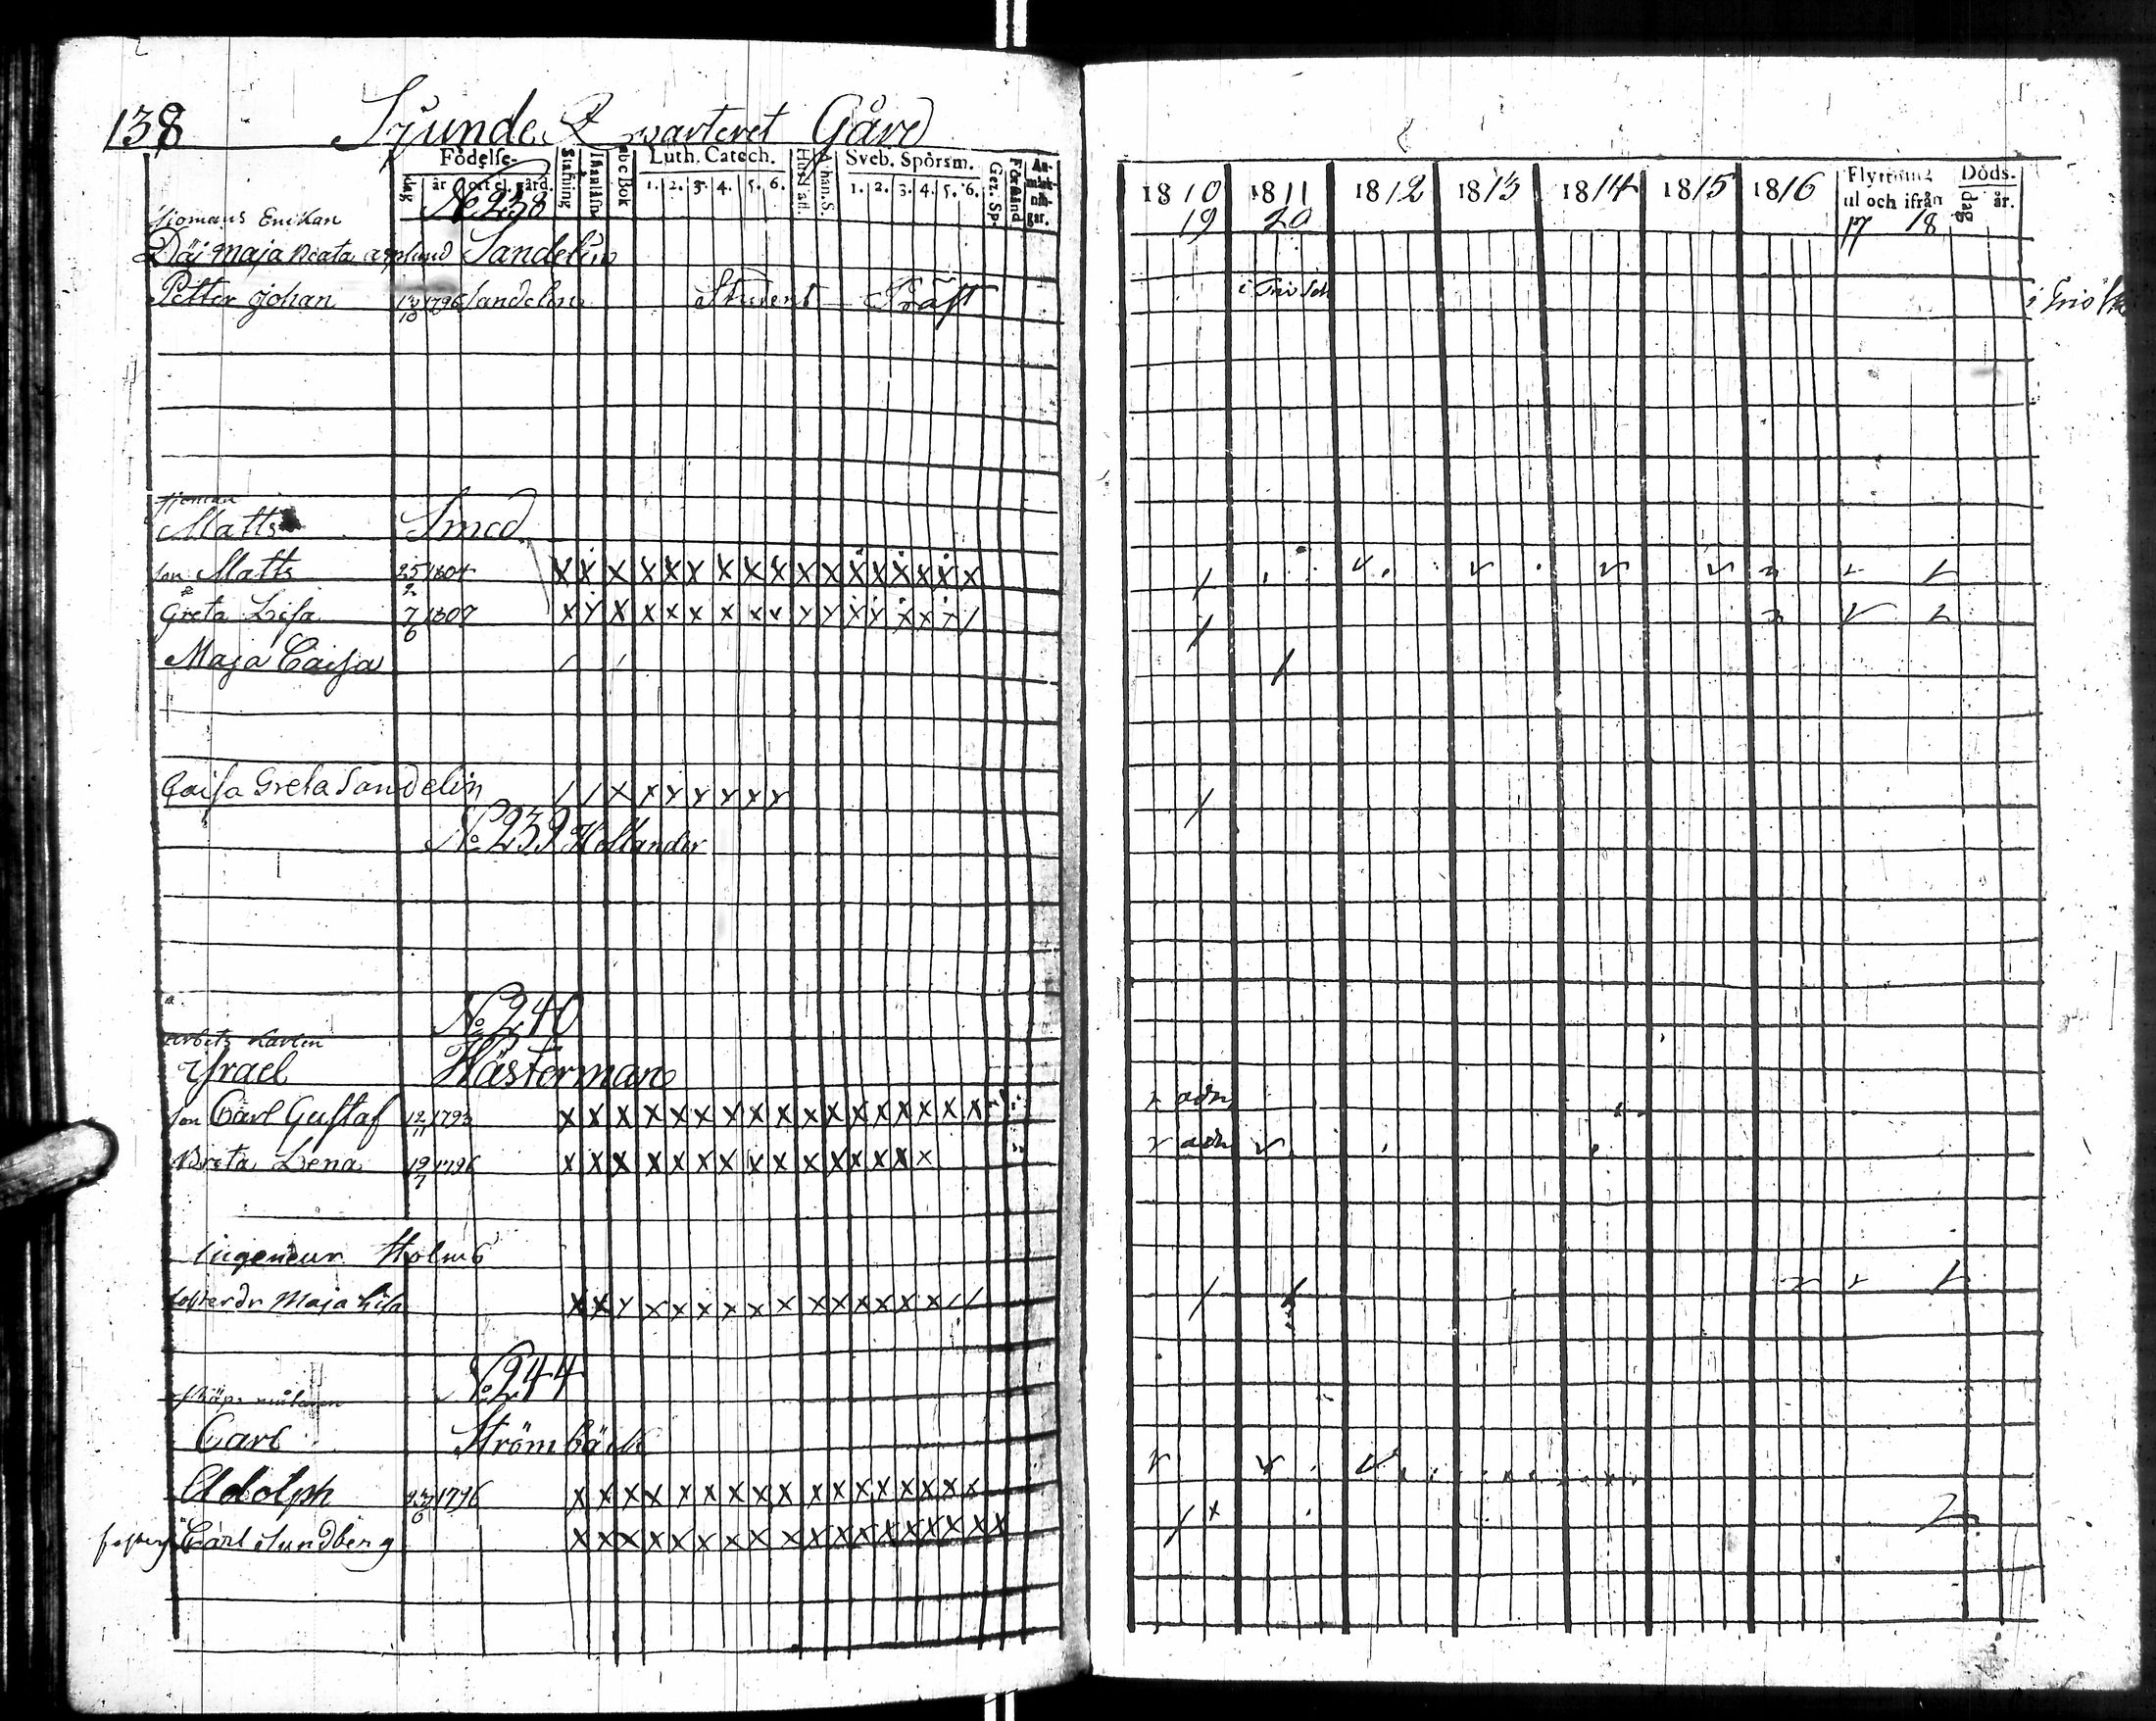 138 Sjunde Qwarteret Gård
Födelse- Stafning Innanläsn abc Bok Luth. Catech. Hus Tafl. Athan. S. Sveb. Spörsm. Gez. Sp. Förstånd An-märk-nin-gar.
dag år ort el. gård. 1. 2. 3. 4. 5. 6. 1. 2. 3. 4. 5. 6.
No 238
Sjömans Enckan
Maja Beata Asplund Sandelin
Petter Johan 1796 Sandelin Student Präst
Sjöman
Matts Smed
son Matts 25/2 1804
Greta Lisa 7/6 1807
Maja Caisa
Caisa Greta Sandelin
No 239 Hollander
No 240
arbets karlen
Israel Wästerman
son Carl Gustaf 12/11 1793
Breta Lena 19/7 1796
Ingeneur Holm
fosterdr Maja Lisa
No 244
Carl Strömbäck
Adolph 1796
Carl Sundberg
1810 1811 1812 1813 1814 1815 1816 Flyttning Döds-
19 20 til och ifrån dag år.
17 18
i Triv. Sch
adm
adm